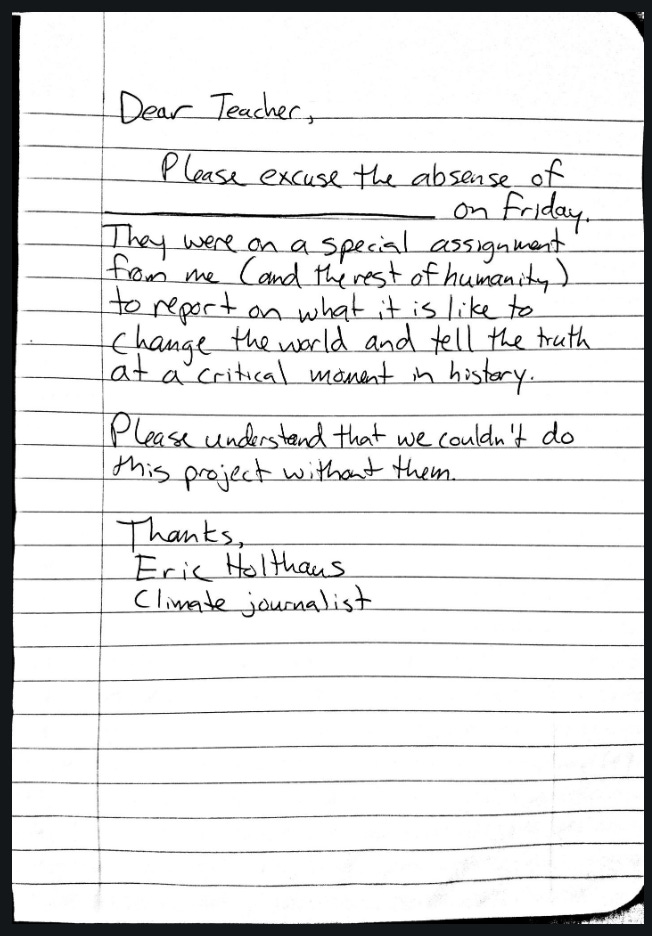 Dear Teacher,
Please excuse the absense of
_______________ on Friday.
They were on a special assignment
from me (and the rest of humanity)
to report on what it is like to
change the world and tell the truth
at a critical moment in history.
Please understand that we couldn't do
this project without them.
Thanks,
Eric Holthaus
Climate journalist